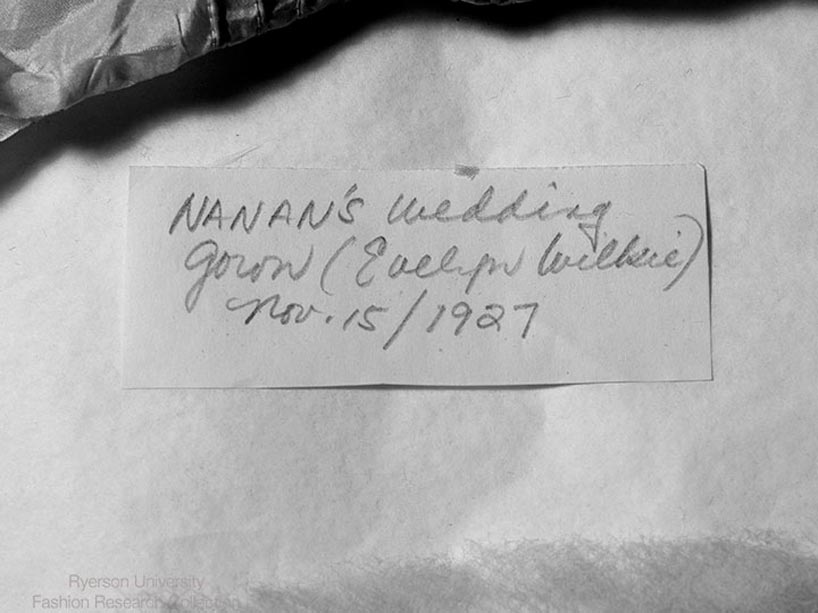 NANAN'S wedding
Gown (Evelyn Wilkie)
Nov. 15/1927
Ryerson University
Fashion Research Collection